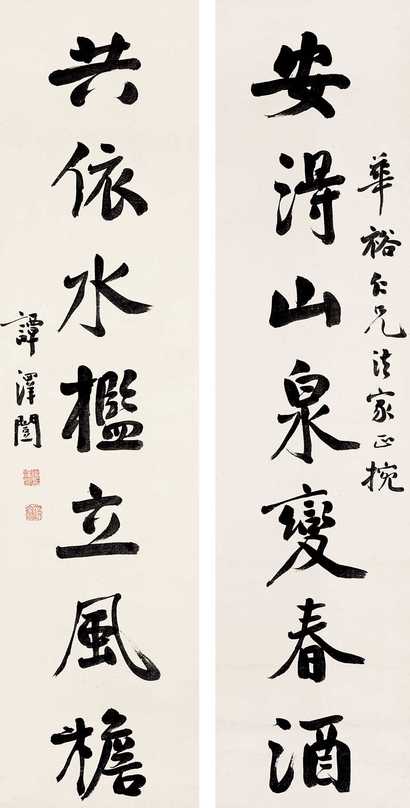 華裕仁兄法家正捥
安得山泉變春酒
共依水檻立風檐
譚澤闓